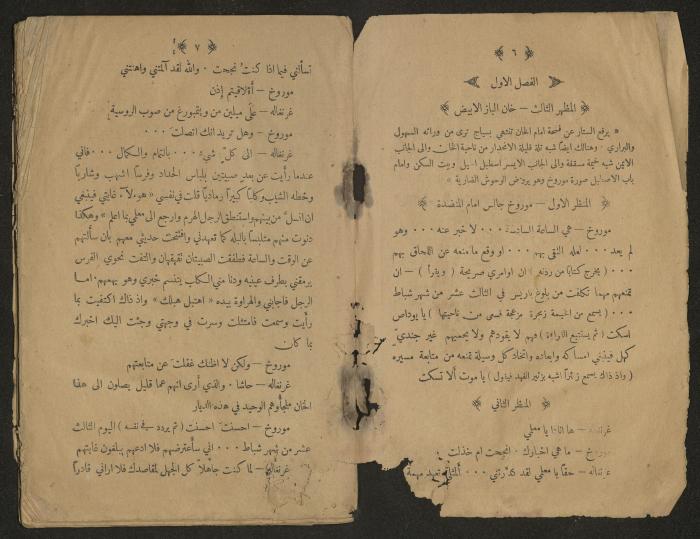 ٦
الفصل الاول
المظهر الثالث — خان الباز الابيض
« يرفع الستار عن فسحة امام الخان تنتهي بسياج ترى من ورائه السهول
والبراري . وهنالك ايضاً شبه تلة قليلة الانحدار من ناحية الخان والى الجانب
الايمن شبه خيمة مسقفة والى الجانب الايسر اسطبل ايل وبيت السكن وامام
باب الاصطبل صورة موروخ وهو يروض الوحوش الضارية »
المنظر الاول — موروخ جالس امام المنضدة
موروخ — هي الساعة السادسة ٠٠٠ لا خبر عنه ٠٠٠ وهو
لم يعد ٠٠٠ لعله التقى بهم ٠٠٠ او وقع ما منعه عن اللحاق بهم
٠٠٠ ( يخرج كتاباً من ردنه ) ان اوامري صريحة ( ويقرأ ) — ان
تمنعهم مهما تكلفت من بلوغ باريس في الثالث عشر من شهر شباط
٠٠٠ ( يسمع من الخيمة زمجرة مزعجة فمسى من ناحيتها ) يا يوداس
اسكت ( ثم يستتبع القراءة ) فهم لا يقودهم ولا يحميهم غير جنديّ
كهل فيلزمني امساكه وابعاده واتخاذ كل وسيلة تمنعه من متابعة مسيره
( واذ ذاك يسمع زئراً اشبه بزئير الفهد فيقول ) يا موت ألا تسكت
المنظر الثاني
غرنغاله — ها انا ذا يا معلي
موروخ — ما هي اخبارك . انجحت ام خذلت
غرنغاله — حقاً يا معلي لقد كدرتني ٠٠٠ ألمثلي تعهد مهمة
٧
تسألني فيما اذا كنت نجحت . والله لقد آلمتني واهنتني
موروخ — أفلاقيتم إذن
غرنغاله — على ميلين من ويتمبورغ من صوب الروسية
موروخ — وهل تريد انك اتصلت ٠٠٠
غرنغاله — الى كل شيء ٠٠٠ بالتمام والكمال ٠٠٠ فاني
عندما رأيت عن بعد صبيتين بلباس الحداد وفرساً اشهب وشارباً
وخطه الشيب وكلباً كبيراً رمادياً قلت في نفسي « هوءلآء غايتي فينبغي
ان انسلّ من بينهم واستنطق الرجل الهرم وارجع الى معلي بما اعلم » وهكذا
دنوت منهم متلبساً بالبله كما تعهدني وافتتحت حديثي معهم بان سألتهم
عن الوقت والساعة فطفقت الصبيتان تقهقهان والتفت نحوي الفرس
يرمقني بطرف عينيه ودنا مني الكلب يتنسم خبري وهو يهمهم . اما
الرجل فاجابني والهراوة بيده « اهتبل هبلك » واذ ذاك اكتفيت بما
رأيت وسمعت فامتثلت وسرت في وجهتي وجئت اليك اخبرك
بما كان
موروخ — ولكن لا اظنك غفلت عن متابعتهم
غرنغاله — حاشا . والذي أرى انهم عما قليل يصلون الى هذا
الخان ملجأوهم الوحيد في هذه الديار
موروخ — احسنت احسنت ( ثم يردد في نفسه ) اليوم الثالث
عشر من شهر شباط ٠٠٠ اني سأعترضهم فلا ادعهم يبلغون غايتهم
غرنغاله — لما كنت جاهلاً كل الجهل لمقاصدك فلا اراني قادراً